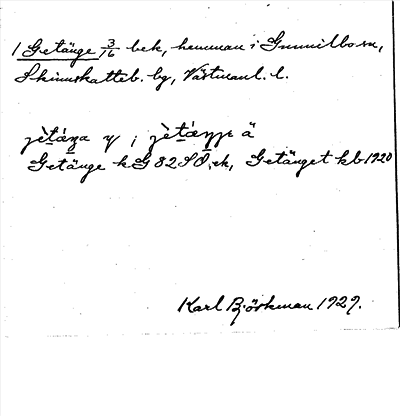 1 Getänge 3/16 bek, hemman i Gunnilbo sn,
Skinnskatteb. bg, Västmanl. l.
y ; ä
Getänge kG 82 SÖ, ek, Getänget kb 1920
Karl Björkman 1929.